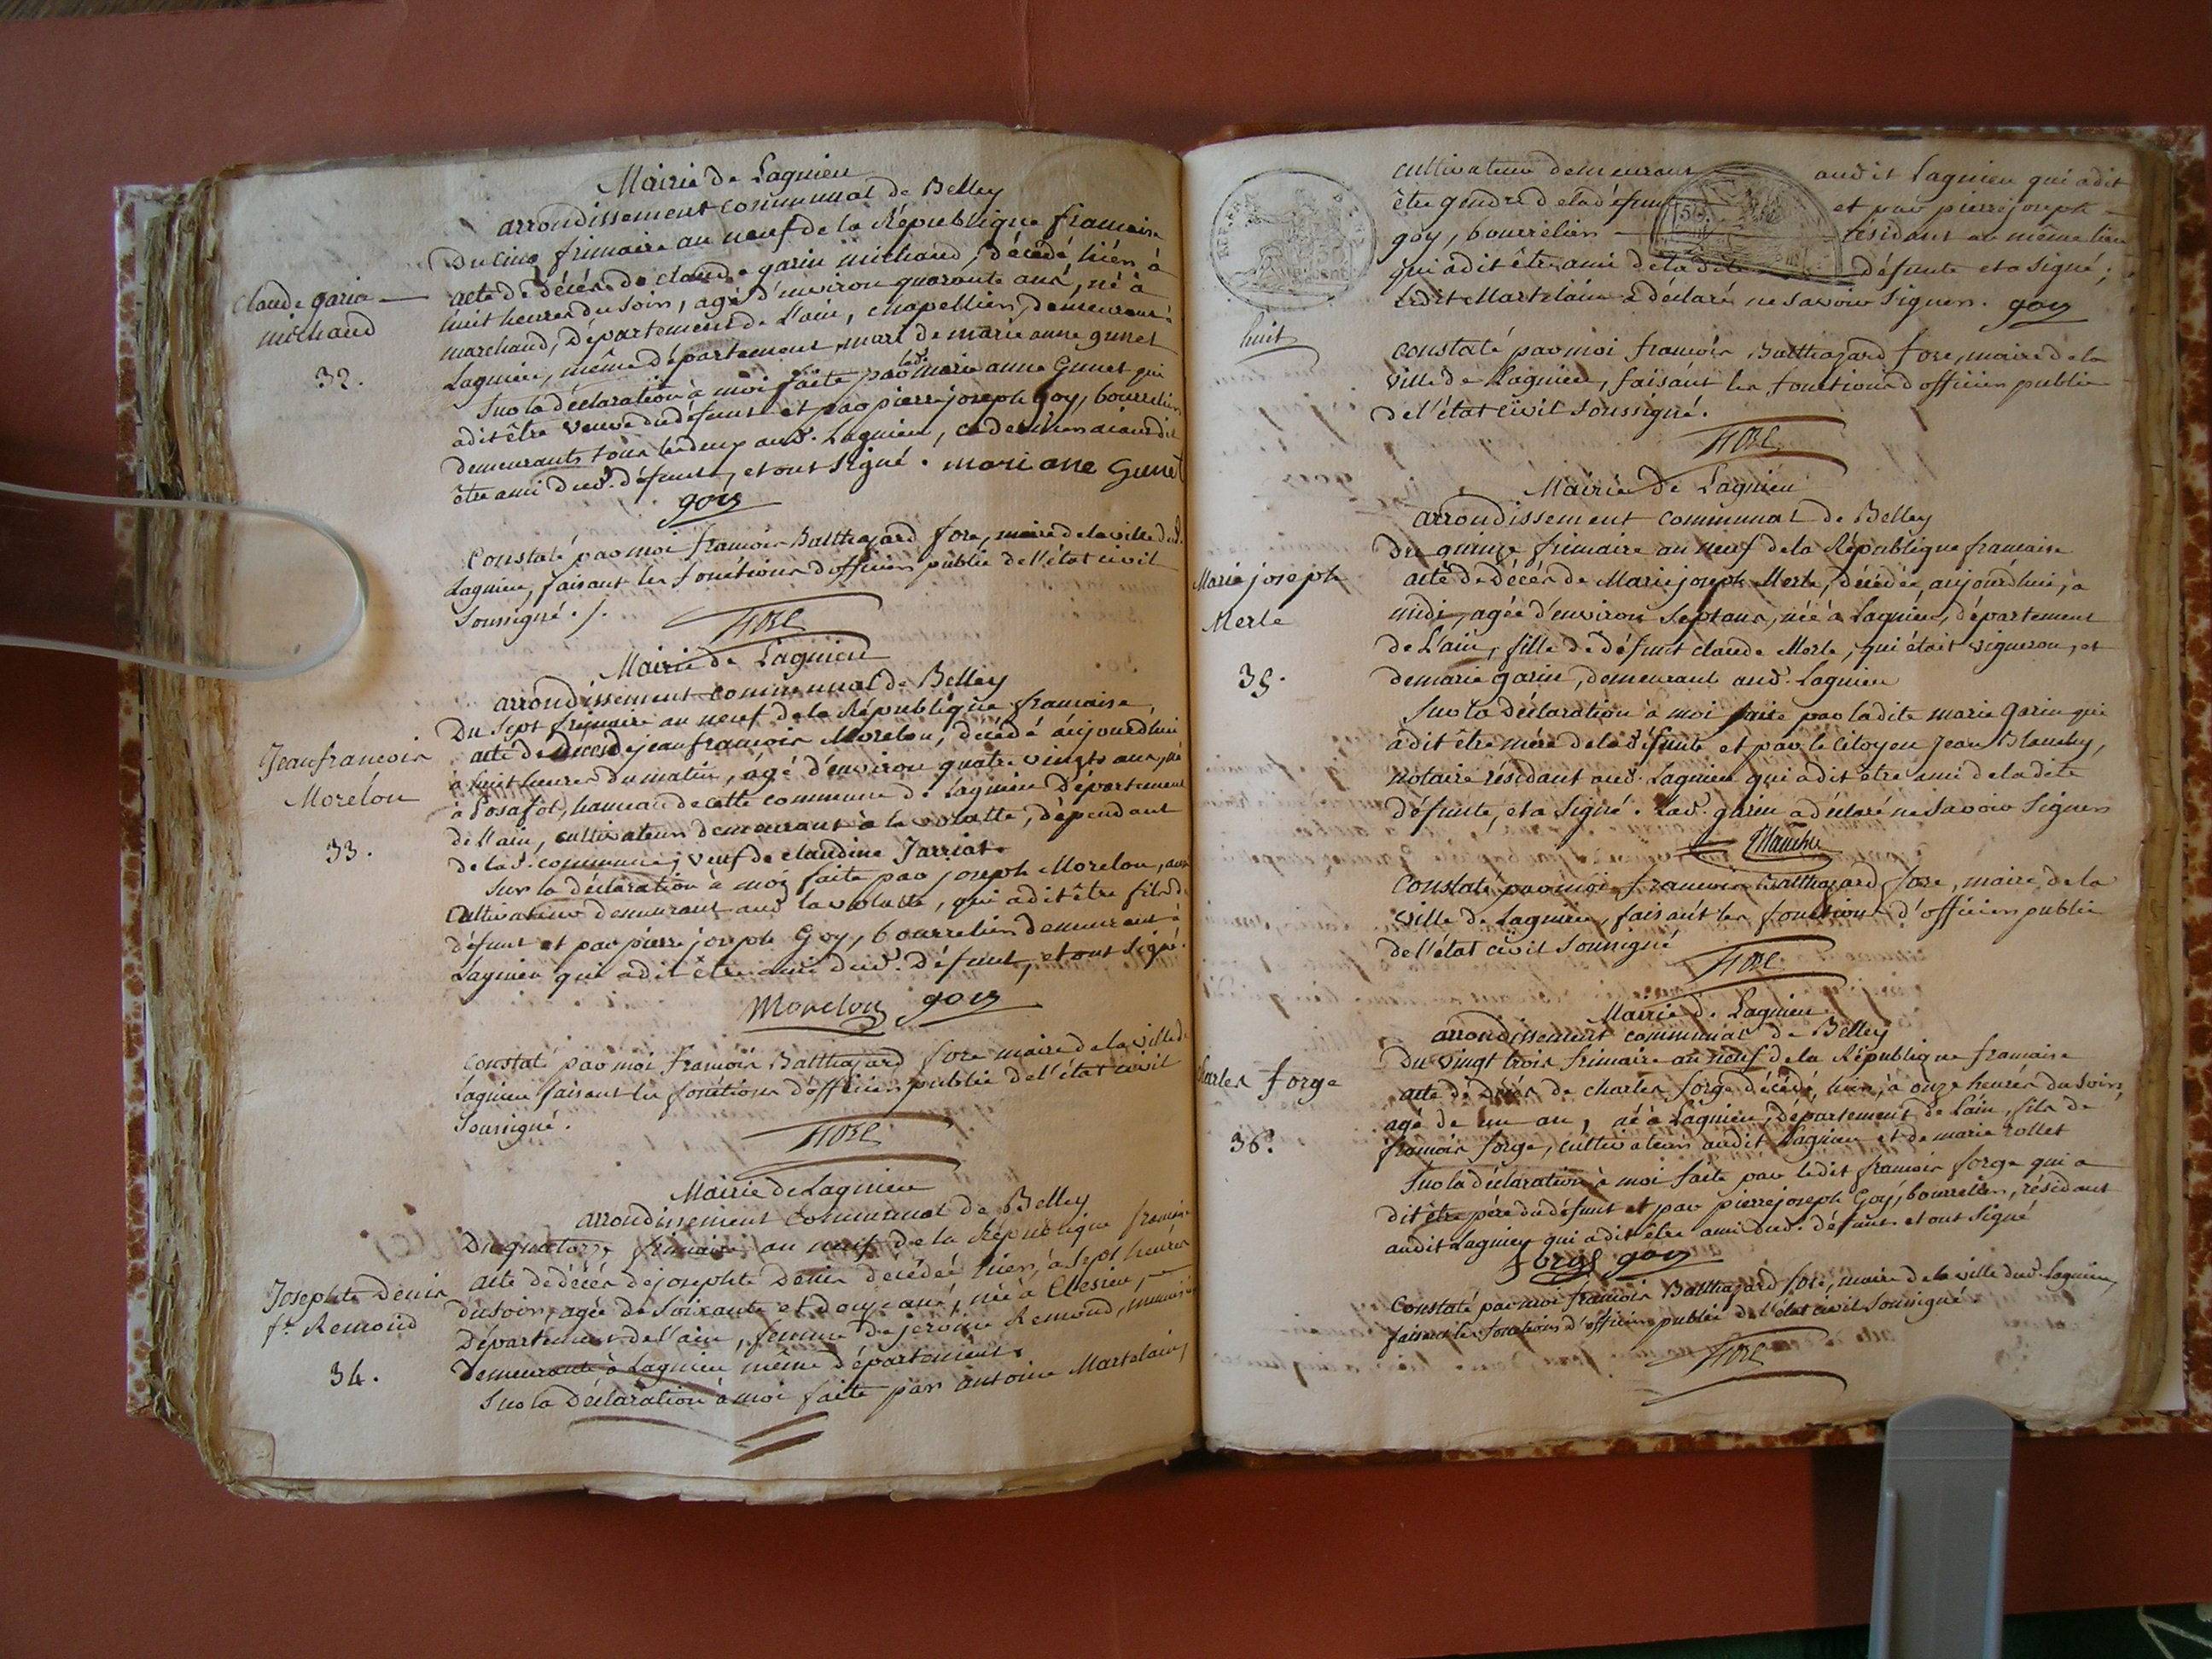 Mairie de Lagnieu
arrondissement communal de Belley
Du cinq frimaire an neuf de la République francaise
Claude garin
michaud
32.
acte de décés de claude garin michaud, décédé hiér à
huit heures du soir, agé d'environ quarante ans, né à
marchand, Département de l'ain, chapellier, demeurant à
Lagnieu, même département, mari de marie anne gunet
Sur la déclaration à moi faite par lad. marie anne Gunet qui
a dit être veuve du défunt et par pierre joseph Goy, bourrelier
demeurants tous les deux aud. Lagnieu, ce dernier aiant dit
être ami dud. défunt, et ont signé. mari ane Gunet
goy
Constaté par moi francois Balthazard fore, maire de la ville de
Lagnieu, faisant les fonctions d'officier public de l'état civil
soussigné ./.
FORE
Mairie de Lagnieu
arrondissement communal de Belley
Du sept frimaire an neuf de la République francaise,
Jean francois
Morelon
33.
acte de décés de jean francois Morelon, décédé aujourdhui
à huit heures du matin, agé d'environ quatre vingts ans, né
à Posafol, hameau de cette commune de Lagnieu Département
de l'ain, cultivateur demeurant à la volatte, dépendant
de lad. commune, veuf de claudine Jarriat.
Sur la déclaration à moi faite par joseph Morelon, aussi
cultivateur demeurant aud. la volatte, qui a dit être fils du
défunt et par pierre joseph Goy, bourrelier demeurant à
Lagnieu qui a dit être ami dud. défunt, et ont signé.
Morelon goy
Constaté par moi francois Balthazard fore maire de la ville de
Lagnieu faisant les fonctions d'officier public de l'état civil
soussigné.
FORE
Mairie de Lagnieu
arrondissement communal de Belley
Du quatorze frimaire an neuf de la République francaise
Josephte Denis
fe. Remond
34.
acte de décés de josephte Denis décédée hier, à sept heures
du soir, agée de soixante et douze ans, née à
Département de l'ain, femme de jerome Remond,
Demeurante à Lagnieu même département.
Sur la déclaration à moi faite par antoine Martelain,
cultivateur demeurant audit Lagnieu qui a dit
être gendre de la défunte et par pierre joseph
goy, bourrelier résidant au même lieu
qui a dit être ami de la dite défunte et a signé;
Ledit Martelain a déclaré ne savoir signer. goy
huit
Constaté par moi francois Balthazard fore, maire de la
ville de Lagnieu, faisant les fonctions d'officier public
de l'état civil soussigné.
FORE
Mairie de Lagnieu
arrondissement communal de Belley
Du quinze frimaire an neuf de la République francaise
Marie joseph
Merle
35.
acte de décés de Marie joseph Merle, décédée, aujourdhui, à
midi, agée d'environ sept ans, née à Lagnieu, département
de L'ain, fille de défunt claude Merle, qui était vigneron, et
de marie garin, demeurant aud. Lagnieu
Sur la déclaration à moi faite par ladite marie garin qui
a dit être mére de la défunte et par le citoyen Jean Blanchy,
notaire résidant aud. Lagnieu qui a dit être ami de la dite
défunte, et a signé. Lad. garin a déclaré ne savoir signer
Blanchy
Constaté par moi francois Balthazard fore, maire de la
ville de Lagnieu, faisant les fonctions d'officier public
de l'état civil soussigné
FORE
Mairie de Lagnieu
arrondissement communal de Belley
Du vingt trois frimaire an neuf de la République francaise
Charles forge
36.
acte de décés de charles forge décédé, hier, à onze heures du soir,
agé de un an, né à Lagnieu, département de l'ain, fils de
francois forge, cultivateur audit Lagnieu et de marie rollet
Sur la déclaration à moi faite par ledit francois forge qui a
dit être pére du défunt et par pierre joseph Goy, bourrelier, résidant
audit Lagnieu qui a dit être ami dud. défunt et ont signé
forge goy
Constaté par moi francois Balthazard fore, maire de la ville dud. Lagnieu,
faisant les fonctions d'officier public de l'état civil soussigné.
FORE